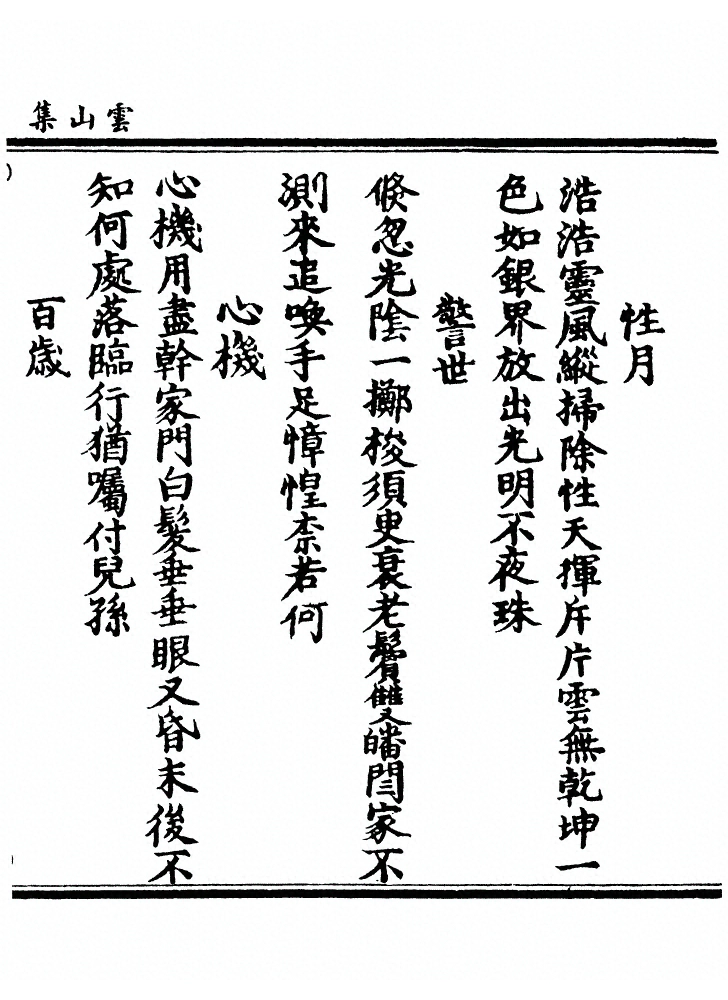 雲山集
性月
浩浩靈風縱掃除性天揮斥片雲無乾坤一
色如銀界放出光明不夜珠
警世
倐忽光陰一擲梭須臾衰老鬢雙皤閻家不
測來追喚手足慞惶柰若何
心機
心機用盡幹家門白髮垂垂眼又昏末後不
知何處落臨行猶囑付兒孫
百歲